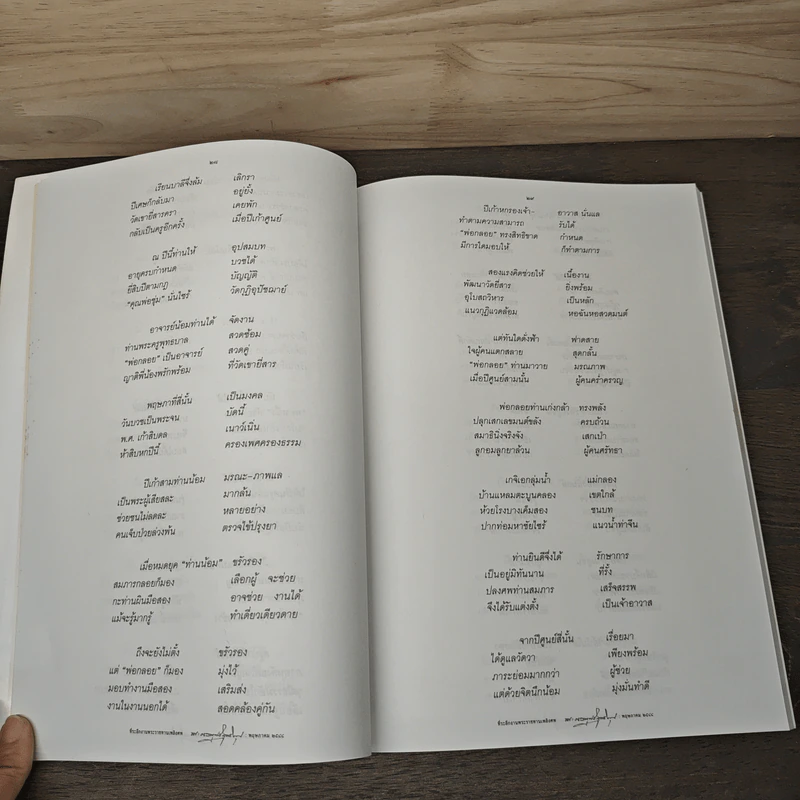 ๒๗
เรียนบาลีจึงล้ม เลิกรา
ปีเศษก็กลับมา อยู่ยั้ง
วัดเขายี่สารครา เคยพัก
กลับเป็นครูอีกครั้ง เมื่อปีเก้าศูนย์
ณ ปีนี้ท่านให้ อุปสมบท
อายุครบกำหนด บวชได้
ยี่สิบปีตามกฎ บัญญัติ
"คุณพ่อชุ่ม" นั่นไซร้ วัดกุฏิอุปัชฌาย์
อาจารย์น้อมท่านได้ จัดงาน
ท่านพระครูพุทธบาล สวดซ้อม
"พ่อกลอย" เป็นอาจารย์ สวดคู่
ญาติพี่น้องพรักพร้อม ที่วัดเขายี่สาร
พฤษภาที่สี่นั้น เป็นมงคล
วันบวชเป็นพระจน บัดนี้
พ.ศ. เก้าสิบดล เนาว์เนิ่น
ห้าสิบหกปีนี้ ครองเพศครองธรรม
ปีเก้าสามท่านน้อม มรณะ-ภาพแล
เป็นพระผู้เสียสละ มากล้น
ช่วยชนไม่ลดละ หลายอย่าง
คนเจ็บป่วยล่วงพ้น ตรวจใช้ปรุงยา
เมื่อหมดยุค "ท่านน้อม" ขรัวรอง
สมภารกลอยก็มอง เลือกผู้ จะช่วย
กะท่านผินมือสอง อาจช่วย งานได้
แม้จะรู้มากรู้ ทำเดี่ยวเดียวดาย
ถึงจะยังไม่ตั้ง ขรัวรอง
แต่ "พ่อกลอย" ก็มอง มุ่งไว้
มอบทำงานมือสอง เสริมส่ง
งานในงานนอกได้ สอดคล้องคู่กัน
ที่ระลึกงานพระราชทานเพลิงศพ พฤษภาคม ๒๕๔๘
๒๘
ปีเก้าหกรองเจ้า- อาวาส นั่นแล
ทำตามความสามารถ รับได้
"พ่อกลอย" ทรงสิทธิขาด กำหนด
มีการใดมอบให้ ก็ทำตามการ
สองแรงคิดช่วยให้ เนื้องาน
พัฒนาวัดยี่สาร ยิ่งพร้อม
อุโบสถวิหาร เป็นหลัก
แนวกุฏิแวดล้อม หอฉันหอสวดมนต์
แต่ทันใดดั่งฟ้า ฟาดสาย
ใจผู้คนแตกสลาย สุดกลั้น
"พ่อกลอย" ท่านมาวาย มรณภาพ
เมื่อปีศูนย์สามนั้น ผู้คนคร่ำครวญ
พ่อกลอยท่านเก่งกล้า ทรงพลัง
ปลุกเสกเลขมนต์ขลัง ครบถ้วน
สมาธินิ่งจริงจัง เสกเป่า
ลูกอมลูกยาล้วน ผู้คนศรัทธา
เกจิเอกลุ่มน้ำ แม่กลอง
บ้านแหลมตะบูนคลอง เขตใกล้
ห้วยโรงบางเค็มสอง ชนบท
ปากท่อมหาชัยไซร้ แนวน้ำท่าจีน
ท่านยินดีจึ่งได้ รักษาการ
เป็นอยู่มิทันนาน ที่รั้ง
ปลงศพท่านสมภาร เสร็จสรรพ
จึงได้รับแต่งตั้ง เป็นเจ้าอาวาส
จากปีศูนย์สี่นั้น เรื่อยมา
ได้ดูแลวัดวา เพียงพร้อม
ภาระย่อมมากกว่า ผู้ช่วย
แต่ด้วยจิตนึกน้อม มุ่งมั่นทำดี
ที่ระลึกงานพระราชทานเพลิงศพ พฤษภาคม ๒๕๔๘